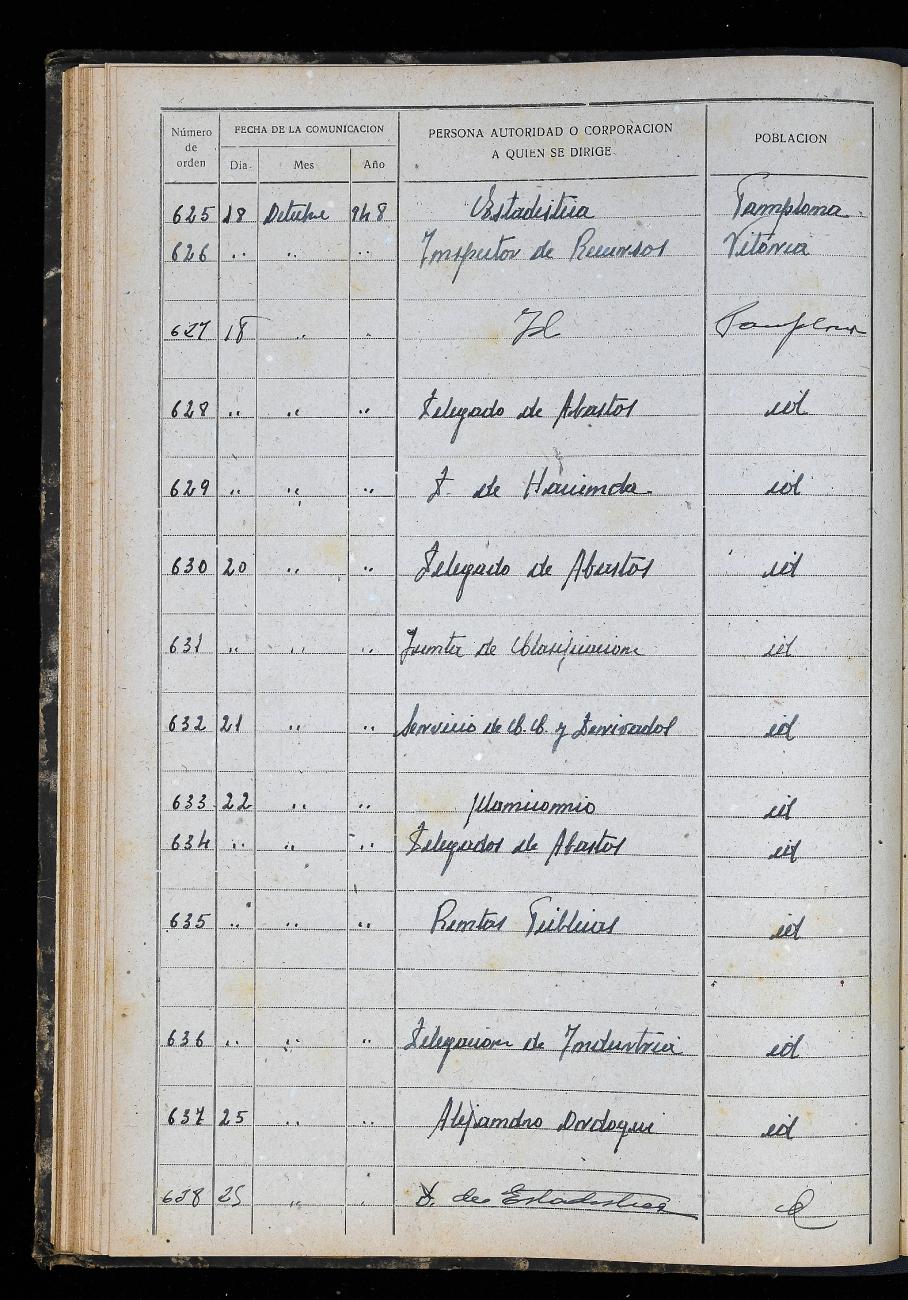 Número de orden FECHA DE LA COMUNICACION PERSONA AUTORIDAD O CORPORACION A QUIEN SE DIRIGE POBLACION
Dia Mes Año
625 18 Octubre 948 Estadistica Pamplona
626 " " " Inspector de Recursos Vitoria
627 18 " " Id Pamplona
628 " " " Delegado de Abastos id
629 " " " D. de Hacienda id
630 20 " " Delegado de Abastos id
631 " " " Junta de Clasificacion id
632 21 " " Servicio de C.C. y Derivados id
633 22 " " Manicomio id
634 " " " Delegados de Abastos id
635 " " " Rentas Públicas id
636 " " " Delegacion de Industria id
637 25 " " Alejandro Ordoqui id
638 25 " " D. de Estadistica